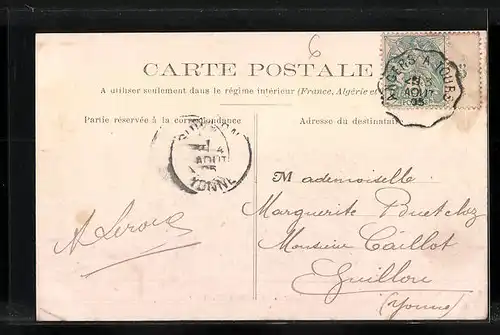 6
CARTE POSTALE
A utiliser seulement dans le régime intérieur (France, Algérie et
Partie réservée à la correspondance
Adresse du destinataire
ANGERS A TOURS
AOUT
05
AOUT
05
YONNE
Mademoiselle
Marguerite
Monsieur Caillot
Guillon
(Yonne)